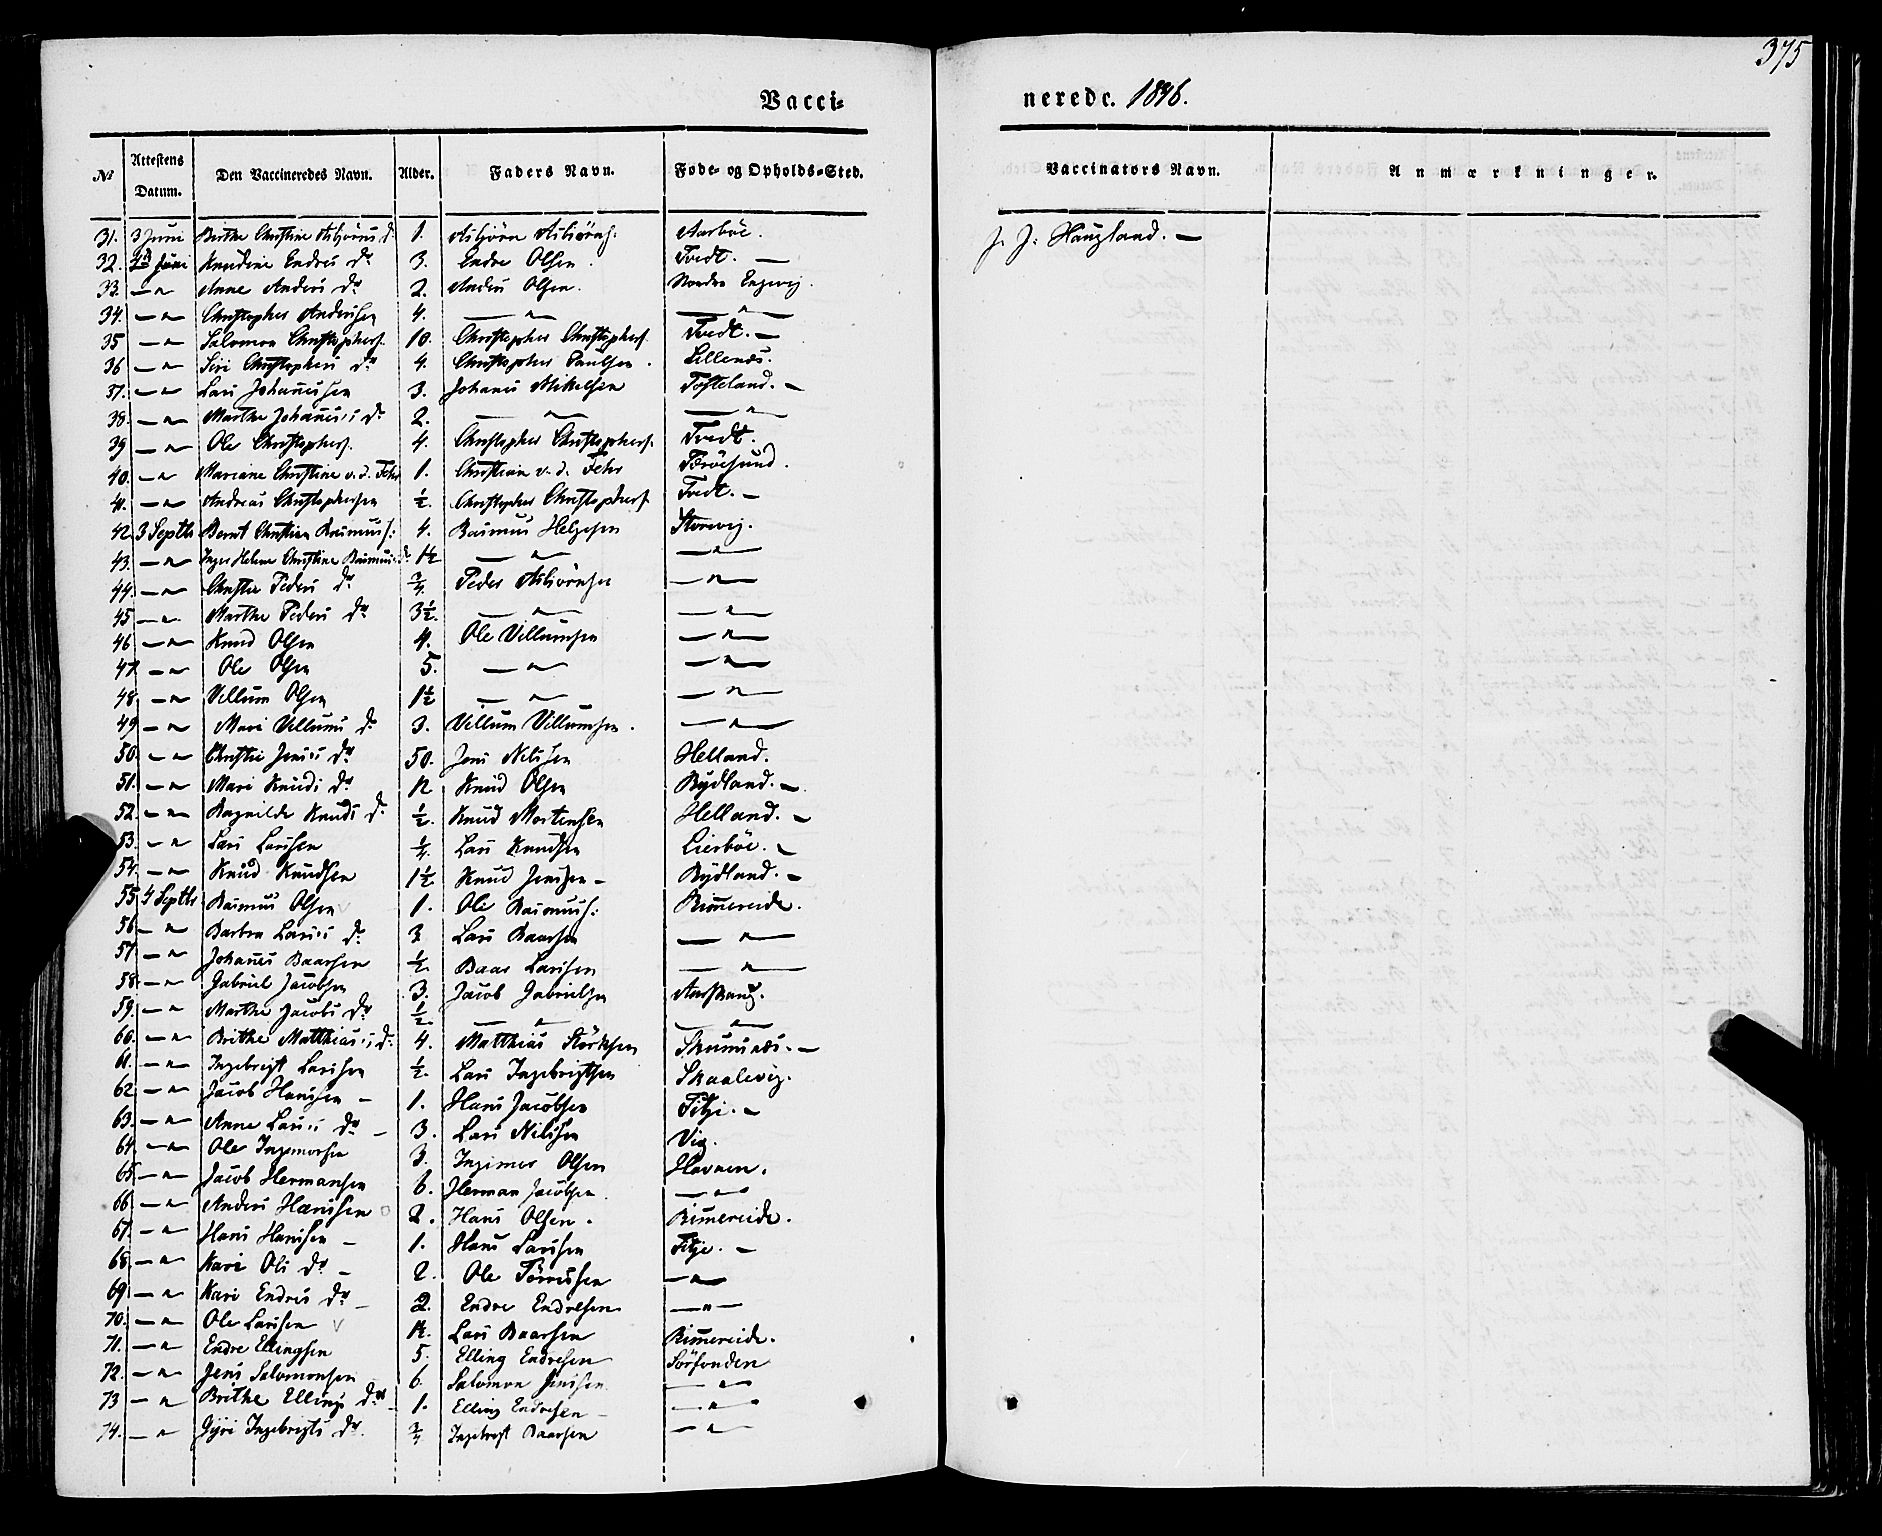 375
Vacci= neredc. 1846.
No Attestens Datum. Den Vaccineredes Navn. Alder. Faders Navn. Føde- og Opholds-Sted. Vaccinators Navn. Anmærkninger.
31. 3 Juni Birthe Christine Asbjørns d. 1. Asbjörn Asbiörns: Aarböe. J. J. Haugland. —
32. Juni Knudine Endres Dr 3. Endre Olsen. Tvedt. —
33. — " Anne Anders Dr 2. Anders Olsen. Nordre Engevig.
34. — " Christopher Andersen 4. — " — — " —
35 — " Salomon Christophers. 10. Christopher Christophers. Tvedt. —
36 — " Siri Christophers Dr 4. Christopher Paulsen. Lillenæs.
37. — " Lars Johannessen 3. Johanes Mikelsen Tofteland. —
38. — " Marthe Johanes's Dr 2. — " — — " —
39 — " Ole Christophers. 4. Christopher Christophers. Tvedt.
40. — " Mareane Christine v. d. Fehr 1. Christian v. d. Fehr Terøesund.
41. — " Andreas Christophersen ½. Christopher Christophers. Tvedt. —
42. 3 Septbr Bernt Christian Rasmuss: 4. Rasmus Helgesen Storevig.
43. — " Inger Helene Christine Rasmus d. 1½ — " — — " —
44. — " Christie Peders Dr ¾. Peder Asbiörnsen — " —
45 — " Marthe Peders Dr 3½. — " — — " —
46 — " Knud Olsen 4. Ole Villumsen — " —
47 — " Ole Olsen 5. — " — — " —
48. — " Villum Olsen 1½ — " — — " —
49 — " Mari Villums Dr 3. Villum Villumsen. — " —
50. — " Christie Jens's Dr 50. Jens Nilssen Helland.
51. — " Mari Knuds Dr 12 Knud Olsen Rydland. —
52. — " Ragnilde Knuds Dr ½. Knud Mortensen Helland. —
53. — " Lars Larssen ¼. Lars Knudsen Lierböe. —
54. — " Knud Knudsen 1½ Knud Jenssen — Rydland. —
55 4 Septbr Rasmus Olsen 1. Ole Rasmuss: Rimereide.
56 — " Barbra Lars's Dr 3 Lars Baarsen — " —
57. — " Johanes Baarsen ½. Baar Larssen — " —
58. — " Gabriel Jacobsen 3. Jacob Gabrielsen Aarskoug.
59. — " Marthe Jacobs Dr ½. — " — — " —
60. — " Brithe Matthias's Dr 4. Matthias Störksen Skumsnæs. —
61. — " Ingebrigt Larssen ½. Lars Ingebrigtsen Skaalevig.
62 — " Jacob Hanssen — 1. Hans Jacobsen Fitje. —
63. — " Anne Lars's Dr — 3. Lars Nilssen Vig.
64. — " Ole Ingemorsen 3. Ingimer Olsen Havnen.
65 — " Jacob Hermansen 6. Herman Jacobsen. — " —
66 — " Anders Hanssen 2. Hans Olsen. Rimereide.
67. — " Hans Hanssen — 1. Hans Larssen Fitje. —
68. — " Kari Ols Dr — 2. Ole Tørressen — " —
69 — " Kari Endres Dr — 2. Endre Endresen — " —
70. — " Ole Larssen 12. Lars Baarsen Rimereide.
71. — " Endre Ellingsen 5. Elling Endresen Sörfonden
72. — " Jens Salomonsen 6. Salomon Jenssen — " —
73 — " Brithe Ellings Dr — 1. Elling Endresen — — " —
74. — " Gyri Ingebrigts Dr. ¾ Ingebregt Baarsen — " —